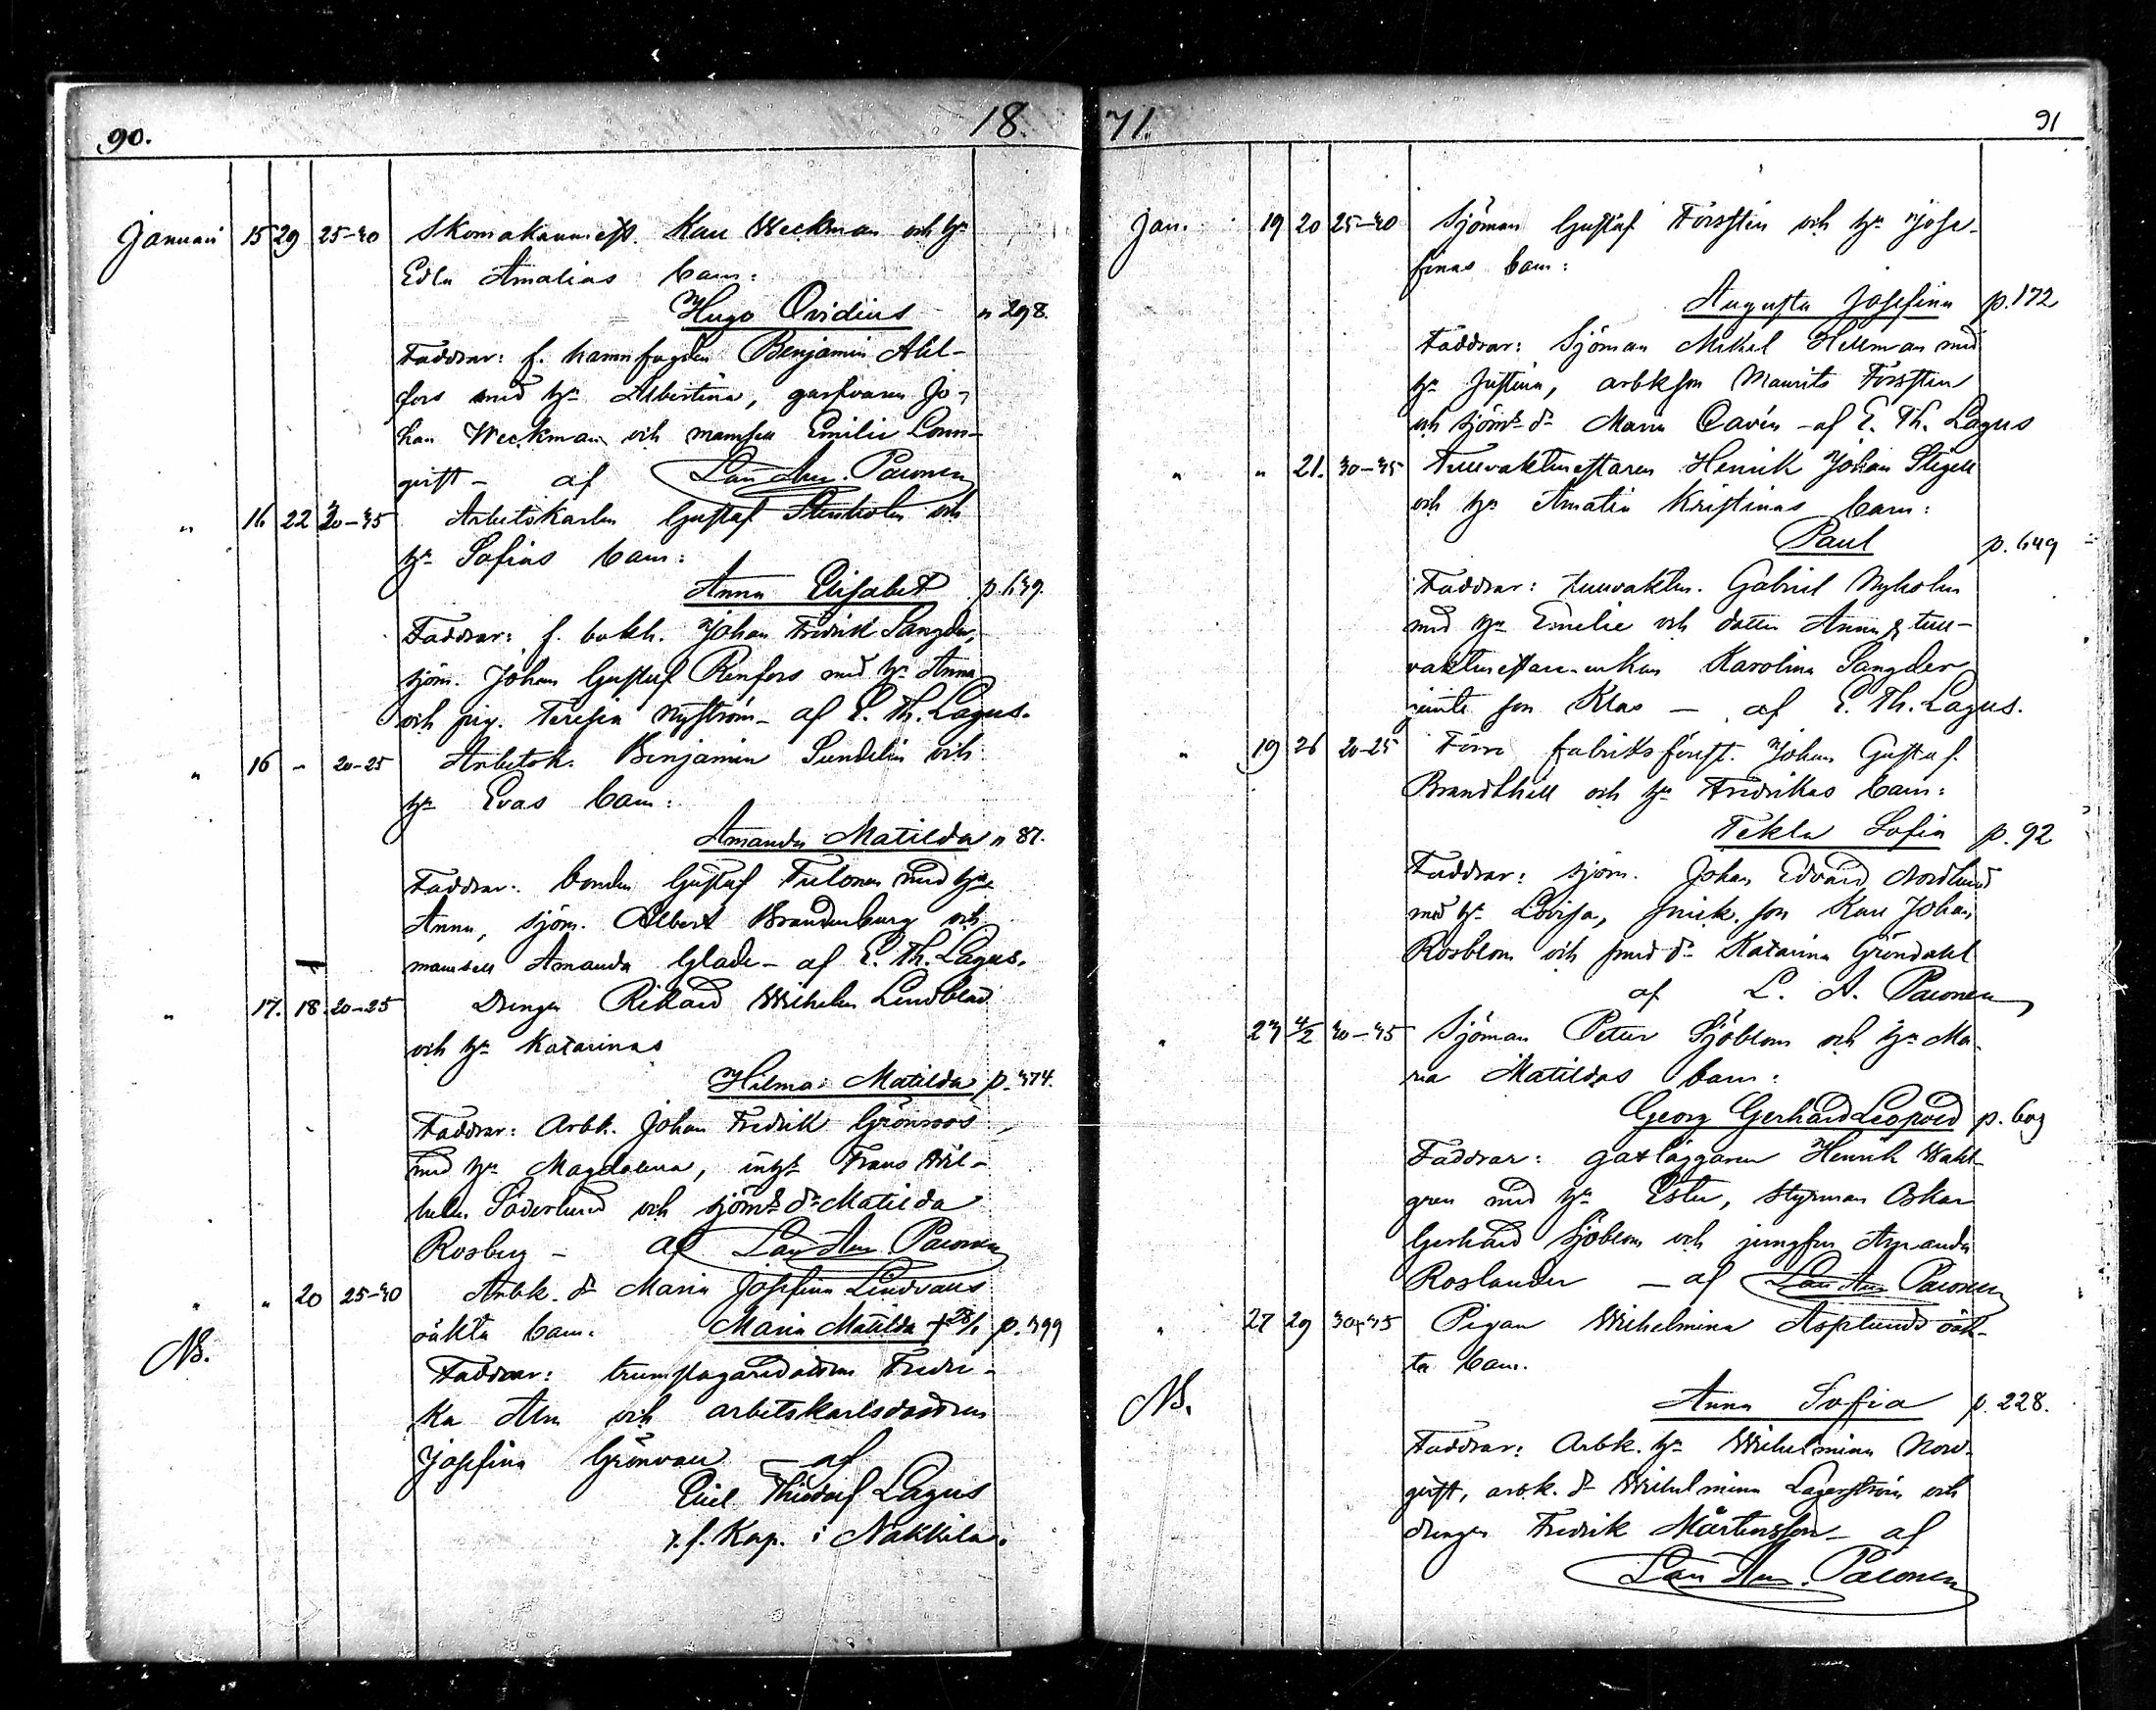 90. 18
Januari 15 29 25-30 Skomakaremest. Karl Weckman och h:u
Edla Amalias barn:
Hugo Ovidius " 298.
Faddrar: f. hamnfogden Benjamin Ahl-
fors med h:u Albertina, garfvaren Jo-
han Weckman och mamsell Emilie Lönn-
qvist - af Lau. Aur. Päivonen
" 16 22 30-35 Arbetskarlen Gustaf Stenholm och
h:u Sofias barn:
Anna Elisabet p. 639.
Faddrar: f. bokh. Johan Fredrik Sangder,
sjöm. Johan Gustaf Renfors med h:u Anna
och pig. Teresia Nyström - af E. Th. Lagus.
" 16 - 20-25 Arbetsk. Benjamin Sundelin och
h:u Evas barn:
Amanda Matilda " 87.
Faddrar: bonden Gustaf Tulonen med h:u
Anna, sjöm. Albert Brandenburg och
mamsell Amanda Glade - af E. Th. Lagus.
" 17. 18. 20-25 Drengen Rikard Wilhelm Lindblad
och h:u Katarinas
Hilma Matilda p. 374.
Faddrar: Arbk. Johan Fredrik Grönroos
med h:u Magdalena, Frans Wil-
helm Söderlund och sjöm:s d:r Matilda
Rosberg - af Lau. Aur. Päivonen
" " 20 25-30 Arbk. d:r Maria Josefina Lindvalls
NB. oäkta barn. Maria Matilda + 28/1 p. 399
Faddrar: trumslagaredottren Fredri-
ka Alm och arbetskarlsdottren
Josefina Grönvall - af
Emil Theodorf Lagus
v. f. Kap. i Nakkila.
71. 91
Jan. 19 20 25-30 Sjöman Gustaf Forsstén och h:u Jose-
finas barn:
Augusta Josefina p. 172
Faddrar: Sjöman Mikel Hellman med
h:u Justina, arbkson Maurits Forsstén
och sjöm:s d:r Maria Cavén - af E. Th. Lagus
" " 21. 30-35 Tullvaktmästaren Henrik Johan Stigell
och h:u Amalia Kristinas barn:
Paul p. 649
Faddrar: tullvaktm. Gabriel Nyholm
med h:u Emelie och dotter Anna & tull-
vaktmästare-enkan Karolina Sangder
jemte son Klas - af E. Th. Lagus.
" 19 26 20-25 Förre fabriksförest. Johan Gustaf
Brandthill och h:u Fredrikas barn:
Tekla Sofia p. 92
Faddrar: sjöm. Johan Edvard Nordlund
med h:u Lovisa, snick. son Karl Johan
Rosblom och smed d:r Katarina Gröndahl
af L. A. Päivonen
" 23 4/2 30-35 Sjöman Petter Sjöblom och h:u Ma-
ria Matildas barn:
Georg Gerhard Leopold p. 603
Faddrar: gatläggaren Henrik Wahl-
gren med h:u Ester, styrman Oskar
Gerhard Sjöblom och jungfru Amanda
Roslander - af Lau. Aur. Päivonen
" 27 29 30-35 Pigan Wilhelmina Asplunds oäk-
ta barn.
NB. Anna Sofia p. 228.
Faddrar: Arbk. h:u Wilhelmina Nord-
qvist, arbk. d:r Wilhelmina Lagerström och
drengen Fredrik Mårtensson - af
Lau. Aur. Päivonen